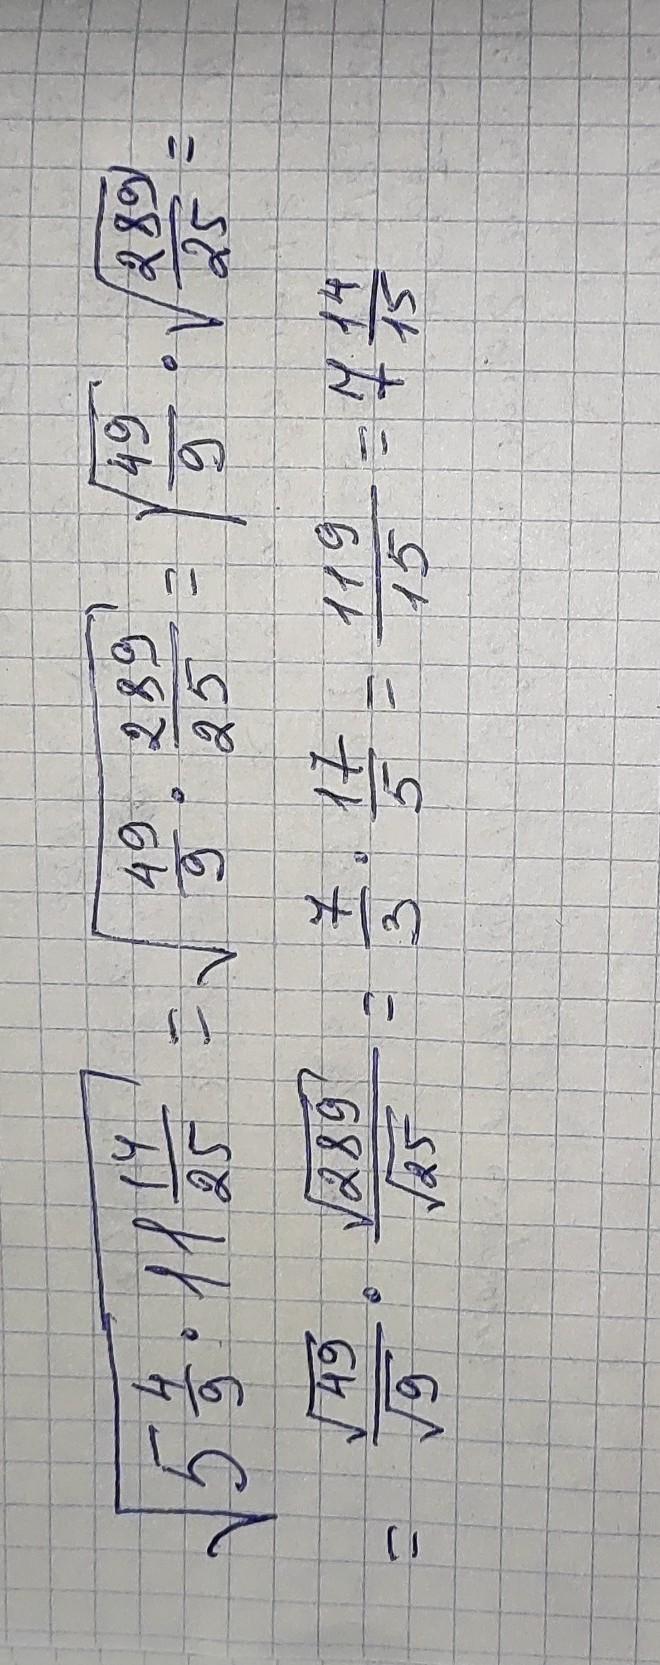 √(5 4/9 · 11 14/25) = √(49/9 · 289/25) = √(49/9) · √(289/25) =
= √49/√9 · √289/√25 = 7/3 · 17/5 = 119/15 = 7 14/15